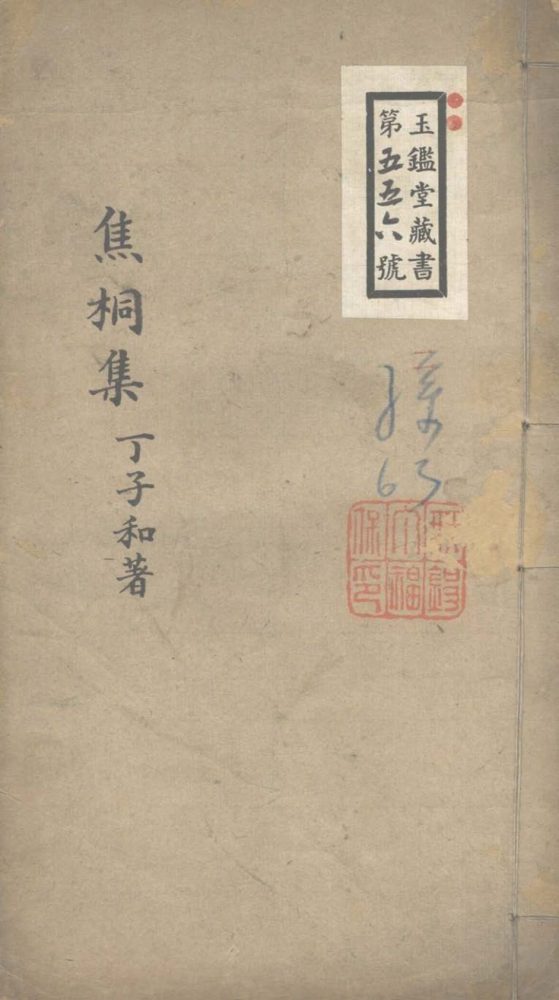 玉鑑堂藏書
第五五六號
焦桐集 丁子和著